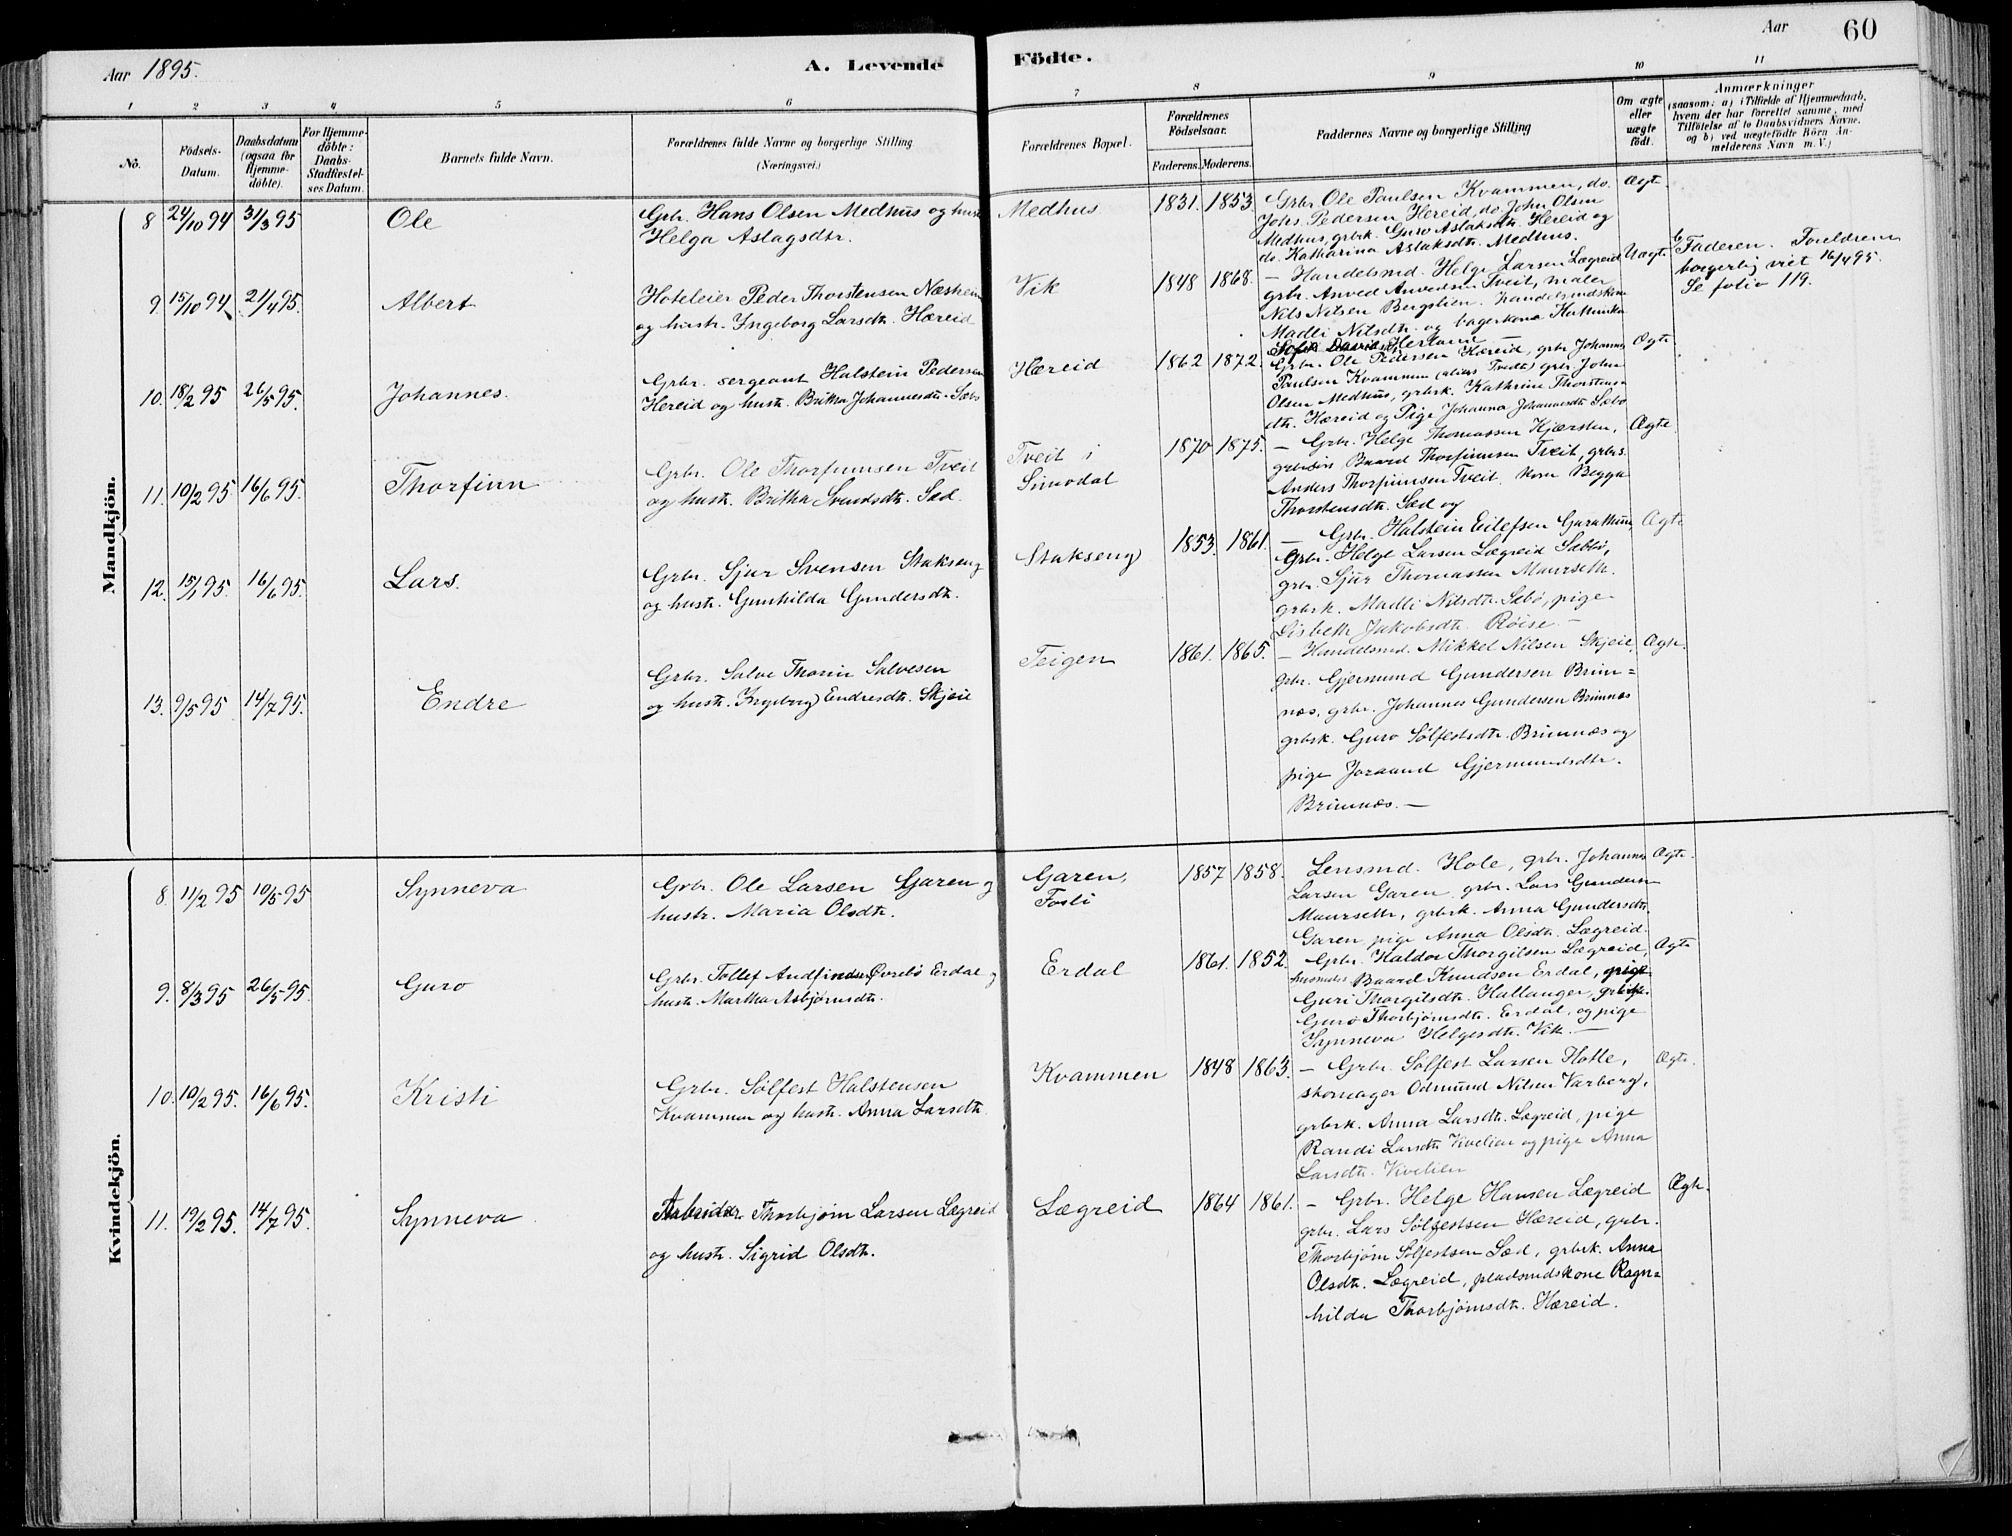 Aar 1895.
A. Levende
Födte.
Aar
60
1
2
3
4
5
6
7
8
9
10
11
No.
Födsels-
Datum.
Daabsdatum
(ogsaa for
Hjemme-
döbte).
For Hjemme-
döbte:
Daabs-
Stadfæstel-
ses Datum.
Barnets fulde Navn.
Forældrenes fulde Navne og borgerlige Stilling
(Næringsvei.)
Forældrenes Bopæl.
Forældrenes
Födselsaar.
Faderens.
Moderens.
Faddernes Navne og borgerlige Stilling
Om ægte
eller
uægte
födt.
Anmærkninger
(saasom: a) i Tilfælde af Hjemmedaab,
hvem der har forrettet samme, med
Tilföielse af to Daabsvidners Navne,
og b) ved uægtefödte Börn An-
melderens Navn m. V.)
Mandkjön.
8 24/10 94 31/3 95
Ole
Grbr. Hans Olsen Medhus og hustr
Helga Aslagsdtr.
Medhus
1831. 1853
Grbr Ole Paulsen Kvammen, do.
Johs Pedersen Hereid, do John Olsen
Medhus, grbrk. Guro Aslaksdtr. Hereid og
do. Katharina Aslaksdtr. Medhus.
Ægte
9. 15/10 94 21/4 95.
Albert
Hoteleier Peder Thorstensen Næsheim
og hustr. Ingeborg Larsdtr. Hæreid
Vik
1848 1868.
– Handelsmd. Helge Larsen Lægreid
grbr. Anved Anvedsen Tveit, maler
Nils Nilsen Bergslien. handelsmdskone
Madli Nilsdtr. og bagerkone
Herland
Uægte
b, Faderen. Foreldrene
borgerlig viet 16/4 95.
Se folio 119.
10. 18/2 95 26/5 95.
Johannes.
Grbr. sergeant Halstein Pedersen
Hereid og hustr. Britha Johannesdtr. Sæbø
Hæreid
1862 1872.
Grbr. Ole Pedersen Hæreid, grbr Johannes
Paulsen Kvammen (alias Tveit) grbr John
Olsen Medhus, grbrk. Kathrine Thorstens
dtr. Hæreid og Pige Johanna Johannesdtr Sæbø
Ægte
11. 10/2 95 16/6 95.
Thorfinn
Grbr. Ole Thorfinnsen Tveit
og hustr. Britha Svendsdtr. Sæd.
Tveit i
Simodal
1870 1875.
– Grbr. Helge Thomassen Kjærsten,
grbrsøn Baard Thorfinnsen Tveit, grbrs.
Anders Thorfinnsen Tveit, kone Begga
Thorstensdtr. Sæd og
Ægte
12. 15/1 95. 16/6 95.
Lars.
Grbr. Sjur Svensen Stakseng
og hustr. Gunhilda Gundersdtr.
Stakseng
1853. 1861.
– Grbr. Halstein Eilefsen Garathun,
Grbr. Helge Larsen Lægreid Sæbbø,
grbr. Sjur Thomassen Maurseth.
grbrk. Madli Nilsdtr. Sæbø, pige
Lisbeth Jakobsdtr. Røise –
Ægte
13. 9/5 95 14/7 95.
Endre
Grbr. Salve Thorin Salvesen
og hustr. Ingeborg Endresdtr. Skjeie
Teigen
1861. 1865.
– Handelsmd. Mikkel Nilsen Skjeie,
grbr. Gjermund Gundersen Brim=
næs, grbr. Johannes Gundersen Brimnæs
grbrk. Guro Sølfestsdtr. Brimnæs og
pige Joraand Gjermundsdtr.
Brimnæs. –
Ægte.
Kvindekjön.
8. 11/2 95 10/5 95
Synneva
Grbr. Ole Larsen Garen og
hustr. Maria Olsdtr.
Garen,
Fosli
1857 1858.
Lensmd. Hole, grbr. Johannes
Larsen Garen, grbr. Lars Gundersen
Maurseth, grbrk. Anna Gundersdtr.
Garen pige Anna Olsdtr. Lægreid.
Ægte.
9. 8/3 95 26/5 95.
Guro
Grbr. Tollef Andfindsen Øvrebø Erdal og
hustr. Martha Asbjørnsdtr.
Erdal
1861. 1852.
– Grbr. Haldor Thorgilsen Lægreid,
husmds Baard Knudsen Erdal, pige
Guri Thorgilsdtr. Hallanger, grbrk.
Guro Thorbjørnsdtr. Erdal, og pige
Synneva Helgesdtr. Vik. –
Ægte
10. 10/2 95. 16/6 95.
Kristi
Grbr. Sølfest Halstensen
Kvammen og hustr. Anna Larsdtr.
Kvammen
1848 1863.
– Grbr. Sølfest Larsen Hotle,
skomager Odmund Nilsen Varberg,
grbrk. Anna Larsdtr. Lægreid, pige
Randi Larsdtr Kvelien og pige Anna
Larsdtr. Kvelien
Ægte.
11. 19/2 95. 14/7 95.
Synneva
Arbeider Thorbjørn Larsen Lægreid
og hustr. Sigrid Olsdtr.
Lægreid
1864 1861.
– Grbr. Helge Hansen Lægreid
grbr. Lars Sølfestsen Hæreid, grbr.
Thorbjørn Sølfestsen Sæd, grbrk. Anna
Olsdtr. Lægreid, pladsmdskone Ragn=
hilda Thorbjørnsdtr. Hæreid.
Ægte.